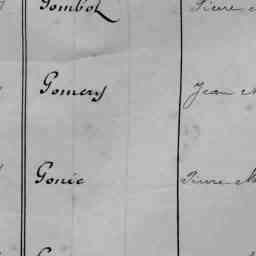 Gombot Pierre
Gomery Jean
Gonie Pierre